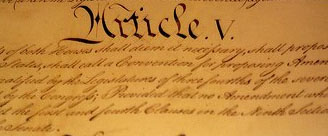 Article. V.
of both Houses shall deem it necessary, shall propos
States, shall call a Convention for proposing Amen
ratified by the Legislatures of three fourths of the severa
by the Congress; Provided that no Amendment whi
the first and fourth Clauses in the Ninth Sectio
Senate.